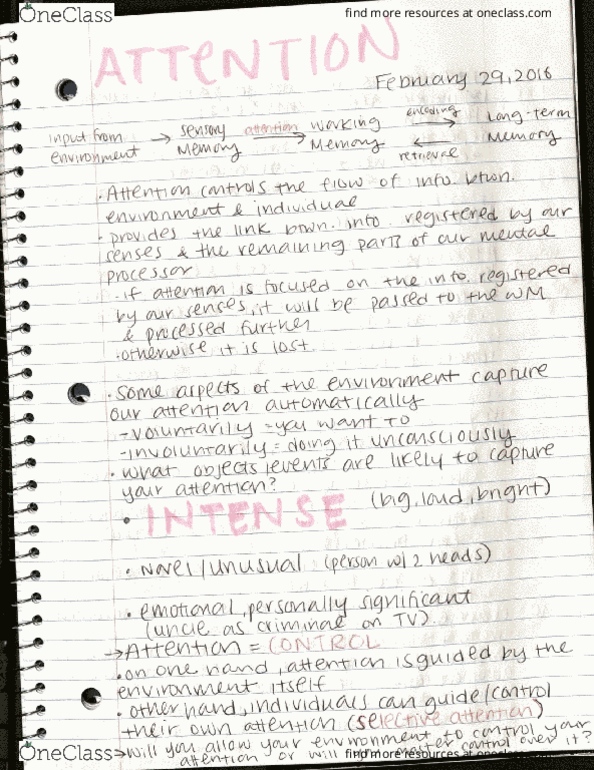 OneClass
find more resources at oneclass.com
ATTENTION
February 29, 2016
input from environment → sensory Memory attention → working Memory encoding → retrieval ← Long-term Memory
· Attention controls the flow of info. btwn.
environment & individual
· provides the link btwn. info registered by our
senses & the remaining parts of our mental
processor
· if attention is focused on the info. registered
by our senses, it will be passed to the WM
& processed further
· otherwise it is lost.
· Some aspects of the environment capture
our attention automatically
- voluntarily = you want to
- involuntarily = doing it unconsciously
· what objects/events are likely to capture
your attention?
· INTENSE (big, loud, bright)
· Novel/unusual (person w/ 2 heads)
· emotional, personally significant
(uncle as criminal on TV)
→ Attention = CONTROL
· on one hand, attention is guided by the
environment itself
· other hand, individuals can guide/control
their own attention (selective attention)
→ will you allow your environment to control your
attention or will control over it?
OneClass
find more resources at oneclass.com